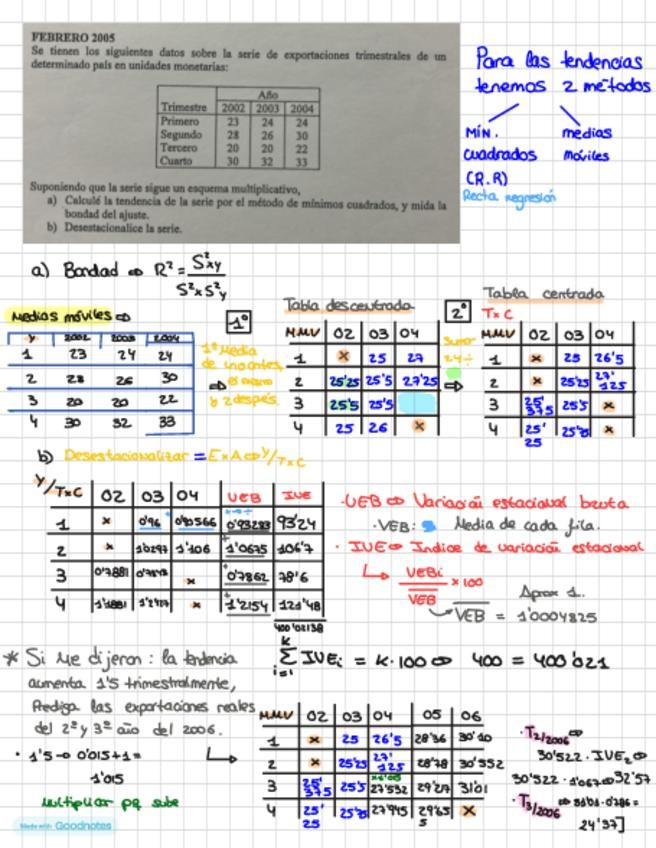 FEBRERO 2005
Se tienen los siguientes datos sobre la serie de exportaciones trimestrales de un
determinado país en unidades monetarias:
Año
Trimestre 2002 2003 2004
Primero 23 24 24
Segundo 28 26 30
Tercero 20 20 22
Cuarto 30 32 33
Suponiendo que la serie sigue un esquema multiplicativo,
a) Calculé la tendencia de la serie por el método de mínimos cuadrados, y mida la
bondad del ajuste.
b) Desestacionalice la serie.
Para las tendencias
tenemos 2 métodos
MÍN. medias
cuadrados móviles
(R.R)
Recta regresión
a) Bondad ⇨ R² = S²xy / S²x S²y
Medias móviles ⇨
Y 2002 2003 2004
1 23 24 24
2 28 26 30
3 20 20 22
4 30 32 33
1º Media
de uno antes,
el mismo
y 2 después
1º
Tabla descentrada
MMV 02 03 04
1 x 25 27
2 25'25 25'5 27'25
3 25'5 25'5
4 25 26 x
2º
Tabla centrada
TxC
MMV 02 03 04
1 x 25 26'5
2 x 25'25 27'125
3 25'375 25'5 x
4 25'25 25'75 x
b) Desestacionalizar = ExA ⇨ Y/TxC
Y/TxC 02 03 04 VEB IVE
1 x 0'96 0'90566 0'93283 93'24
2 x 1'0297 1'106 1'0675 106'7
3 0'7881 0'7843 x 0'7862 78'6
4 1'1881 1'2427 x 1'2154 121'48
400'02138
· VEB ⇨ Variación estacional bruta
· VEB: Media de cada fila.
· IVE ⇨ Índice de variación estacional
VEBi / VEB x 100
Aprox 1.
VEB = 1'0004825
* Si me dijeron: la tendencia
aumenta 1'5 trimestralmente,
Prediga las exportaciones reales
del 2º y 3º año del 2006.
· 1'5 → 0'015+1=
1'015
Multiplicar pq sube
k
Σ IVEi = k·100 ⇨ 400 = 400'021
i=1
MMV 02 03 04 05 06
1 x 25 26'5 28'36 30'10
2 x 25'25 27'125 28'78 30'552
3 25'375 25'5 27'532 29'27 31'01
4 25'25 25'75 27'945 29'655 x
· T2/2006 ⇨
30'522 · IVE2 ⇨
30'522 · 1'067 ⇨ 32'57
· T3/2006 ⇨ 31'01 · 0'786 =
24'37]
Made with Goodnotes